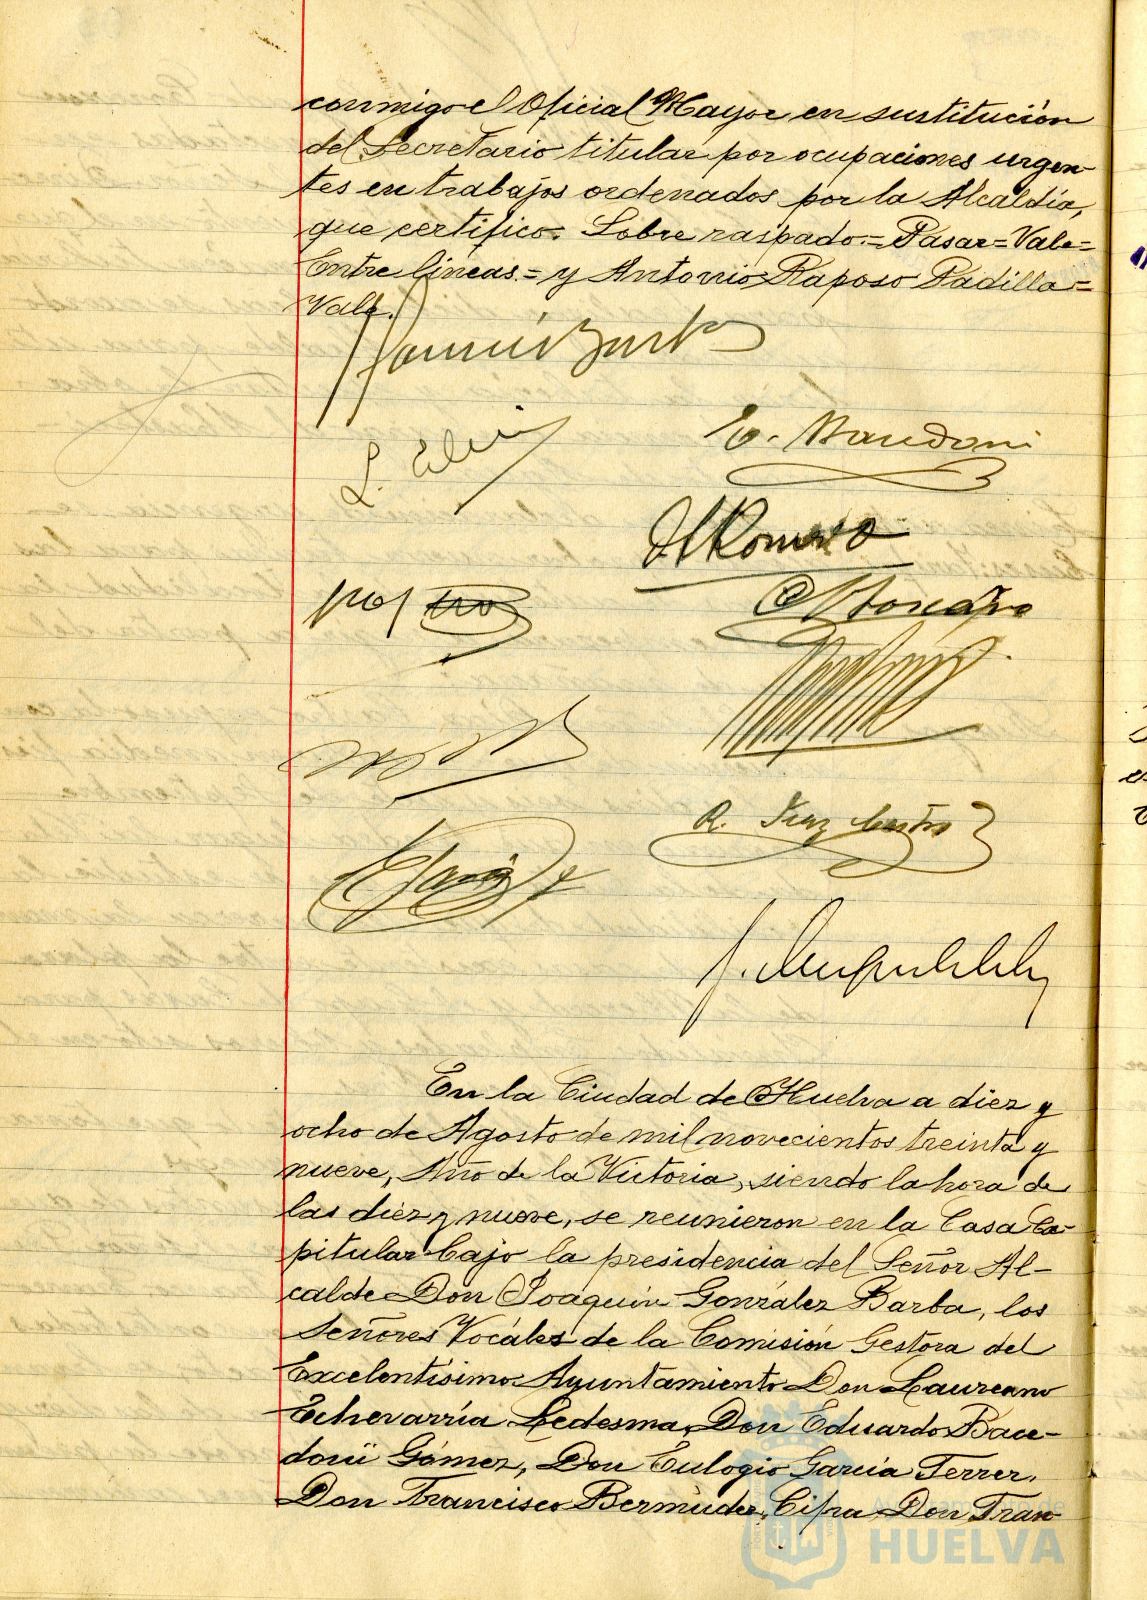 conmigo el Oficial Mayor en sustitución
del Secretario titular por ocupaciones urgen-
tes en trabajos ordenados por la Alcaldía,
que certifico. Sobre raspado.= Pasar= Vale=
Entre líneas.= y Antonio Raposo Padilla=
Vale.
E.
Romero
R. Díaz
En la Ciudad de Huelva a diez y
ocho de Agosto de mil novecientos treinta y
nueve, Año de la Victoria, siendo la hora de
las diez y nueve, se reunieron en la Casa Ca-
pitular bajo la presidencia del Señor Al-
calde Don Joaquín González Barba, los
Señores Vocales de la Comisión Gestora del
Excelentísimo Ayuntamiento Don Laureano
Echevarría Ledesma, Don Eduardo Bace-
doni Gómez, Don Eulogio García Ferrer,
Don Francisco Bermudez Cifra Don Fran-
Ayuntamiento de
HUELVA